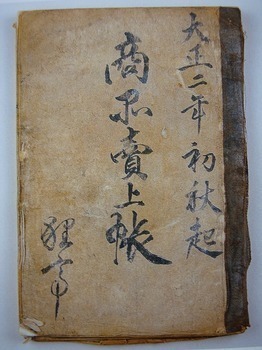 大正二年 初秋起
商品賣上帳
狸亭